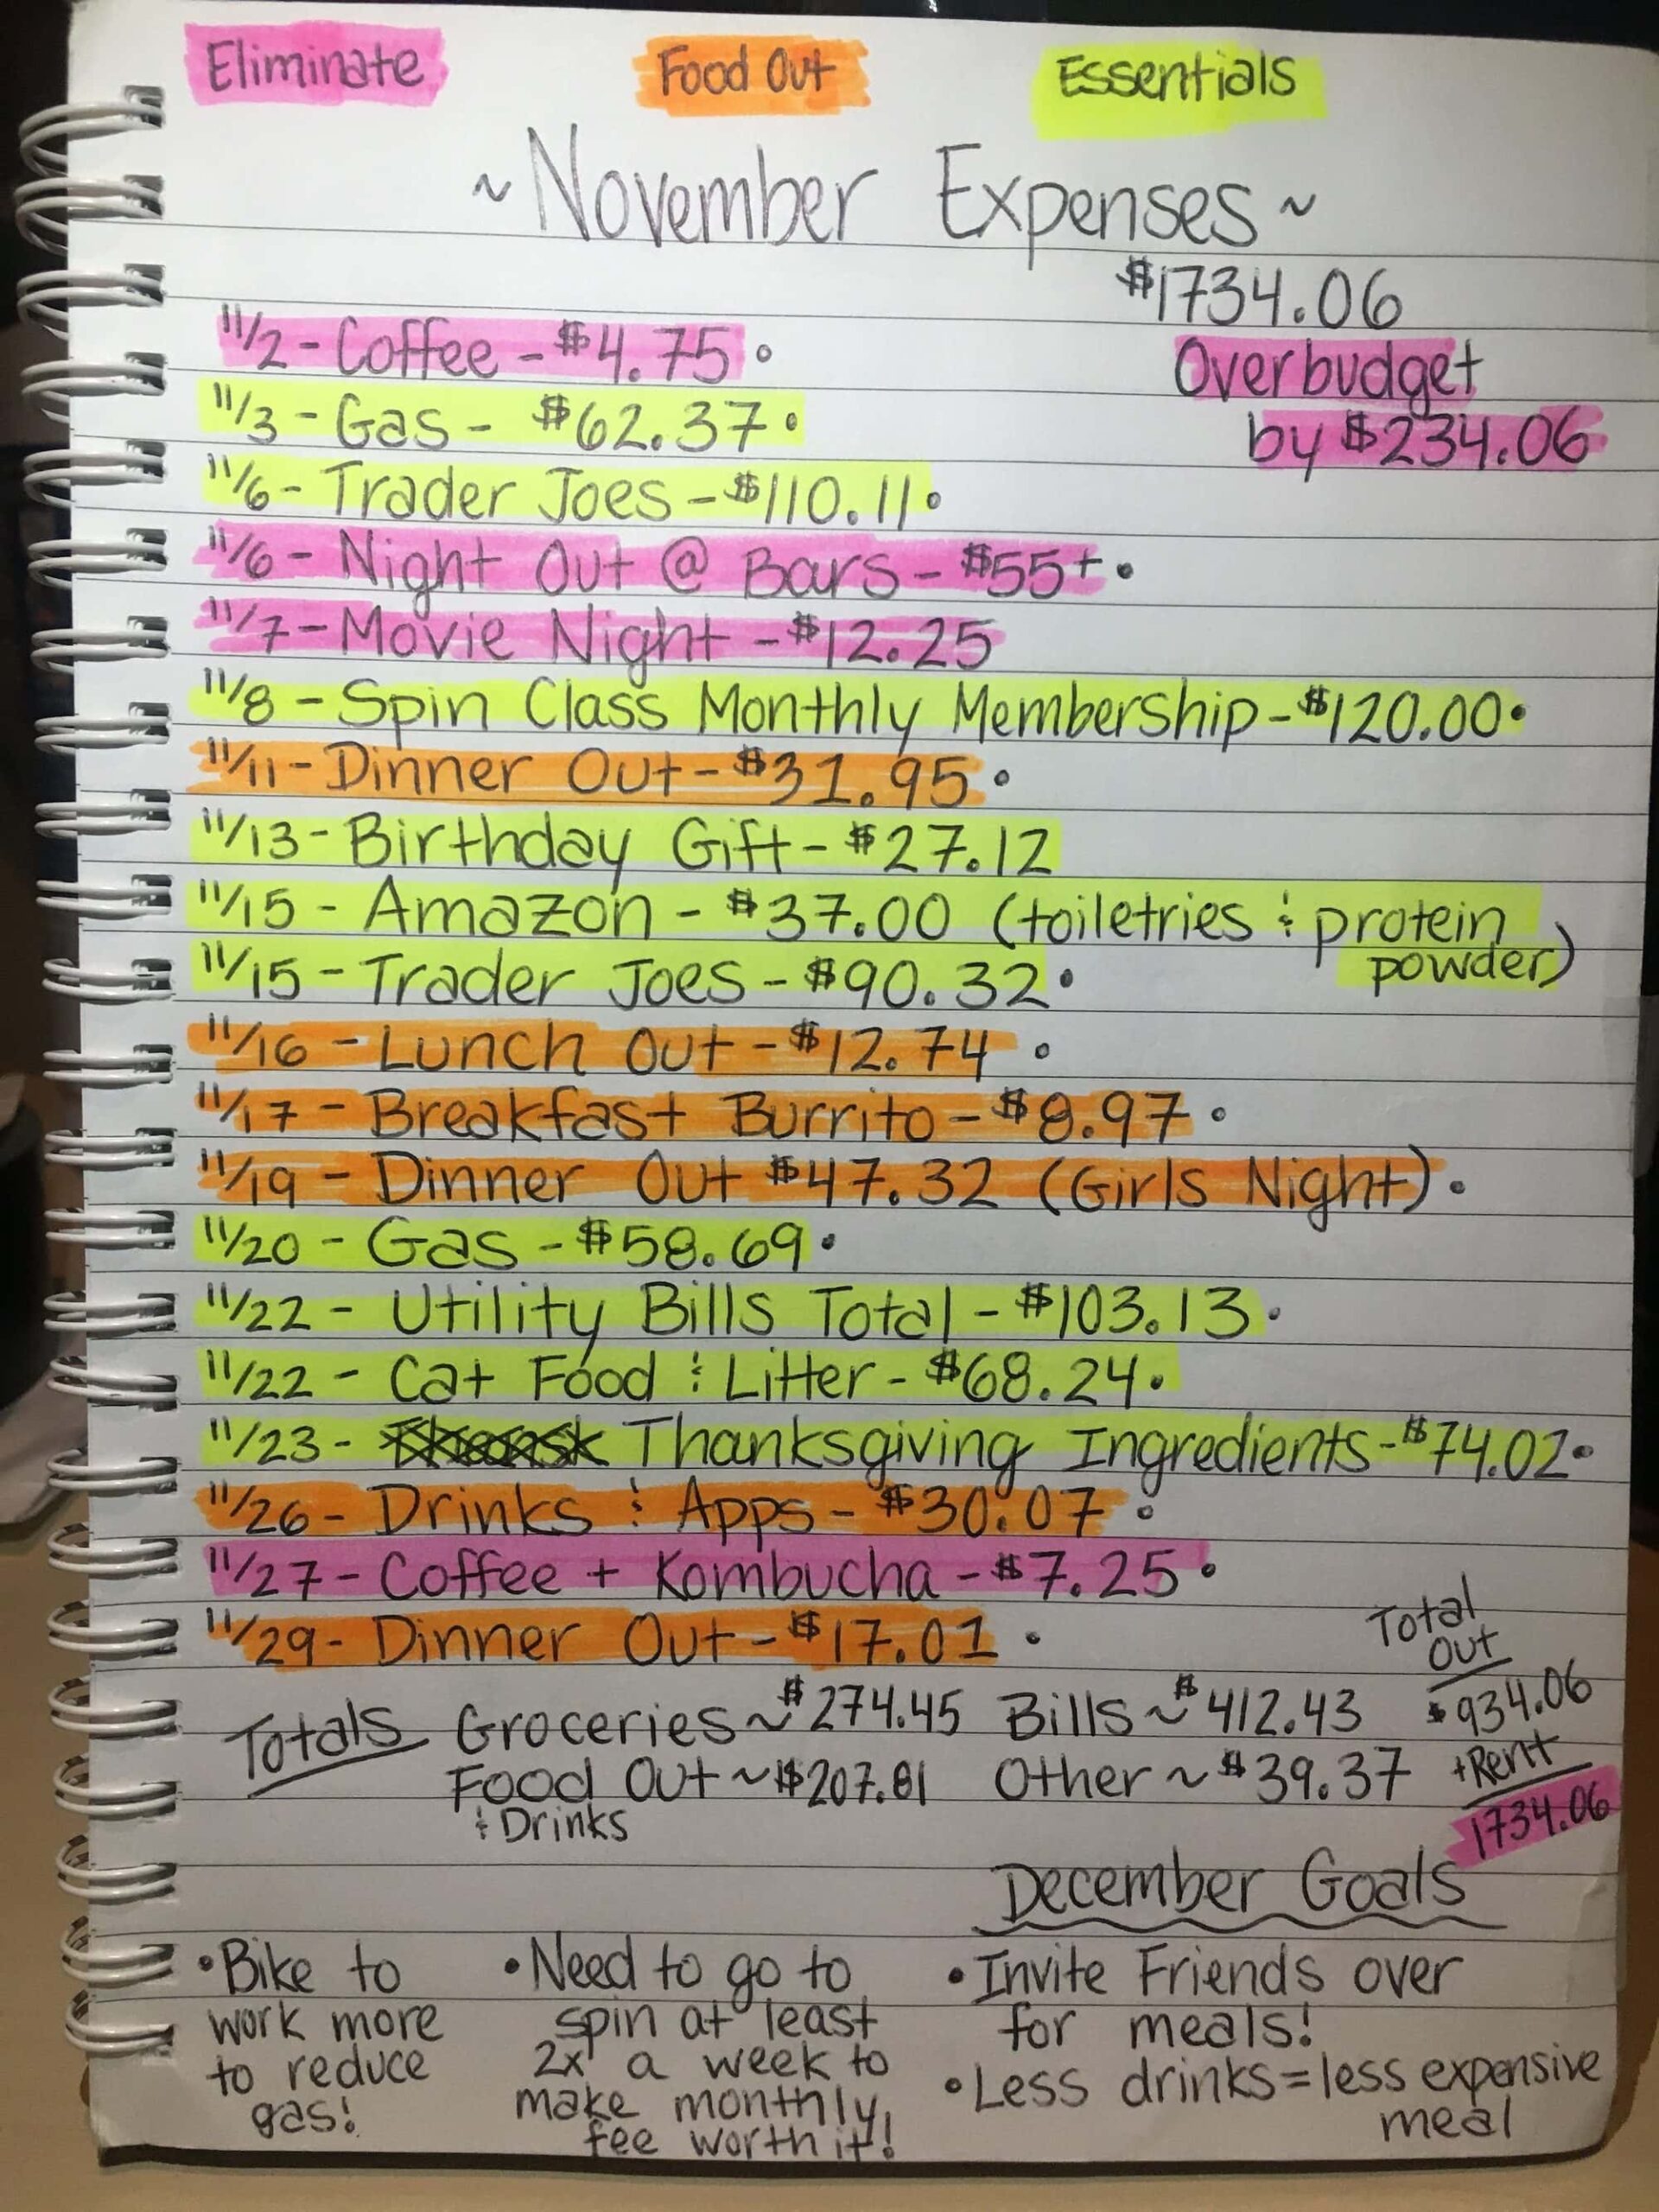 Eliminate Food Out Essentials
~November Expenses~
$1734.06
11/2 - Coffee - $4.75 •
Overbudget
11/3 - Gas - $62.37 •
by $234.06
11/6 - Trader Joes - $110.11 •
11/6 - Night Out @ Bars - $55+ •
11/7 - Movie Night - $12.25
11/8 - Spin Class Monthly Membership - $120.00 •
11/11 - Dinner Out - $31.95 •
11/13 - Birthday Gift - $27.12
11/15 - Amazon - $37.00 (toiletries & protein
powder)
11/15 - Trader Joes - $90.32 •
11/16 - Lunch Out - $12.74 •
11/17 - Breakfast Burrito - $8.97 •
11/19 - Dinner Out $47.32 (Girls Night) •
11/20 - Gas - $58.69 •
11/22 - Utility Bills Total - $103.13 •
11/22 - Cat Food & Litter - $68.24 •
11/23 - Thanksgiving Ingredients - $74.02 •
11/26 - Drinks & Apps - $30.07 •
11/27 - Coffee + Kombucha - $7.25 •
11/29 - Dinner Out - $17.01 •
Total
Out
$934.06
+Rent
1734.06
Totals Groceries ~ $274.45 Bills ~ $412.43
Food Out ~ $207.81 Other ~ $39.37
& Drinks
December Goals
• Bike to
work more
to reduce
gas!
• Need to go to
spin at least
2x a week to
make monthly
fee worth it!
• Invite Friends over
for meals!
• Less drinks = less expensive
meal